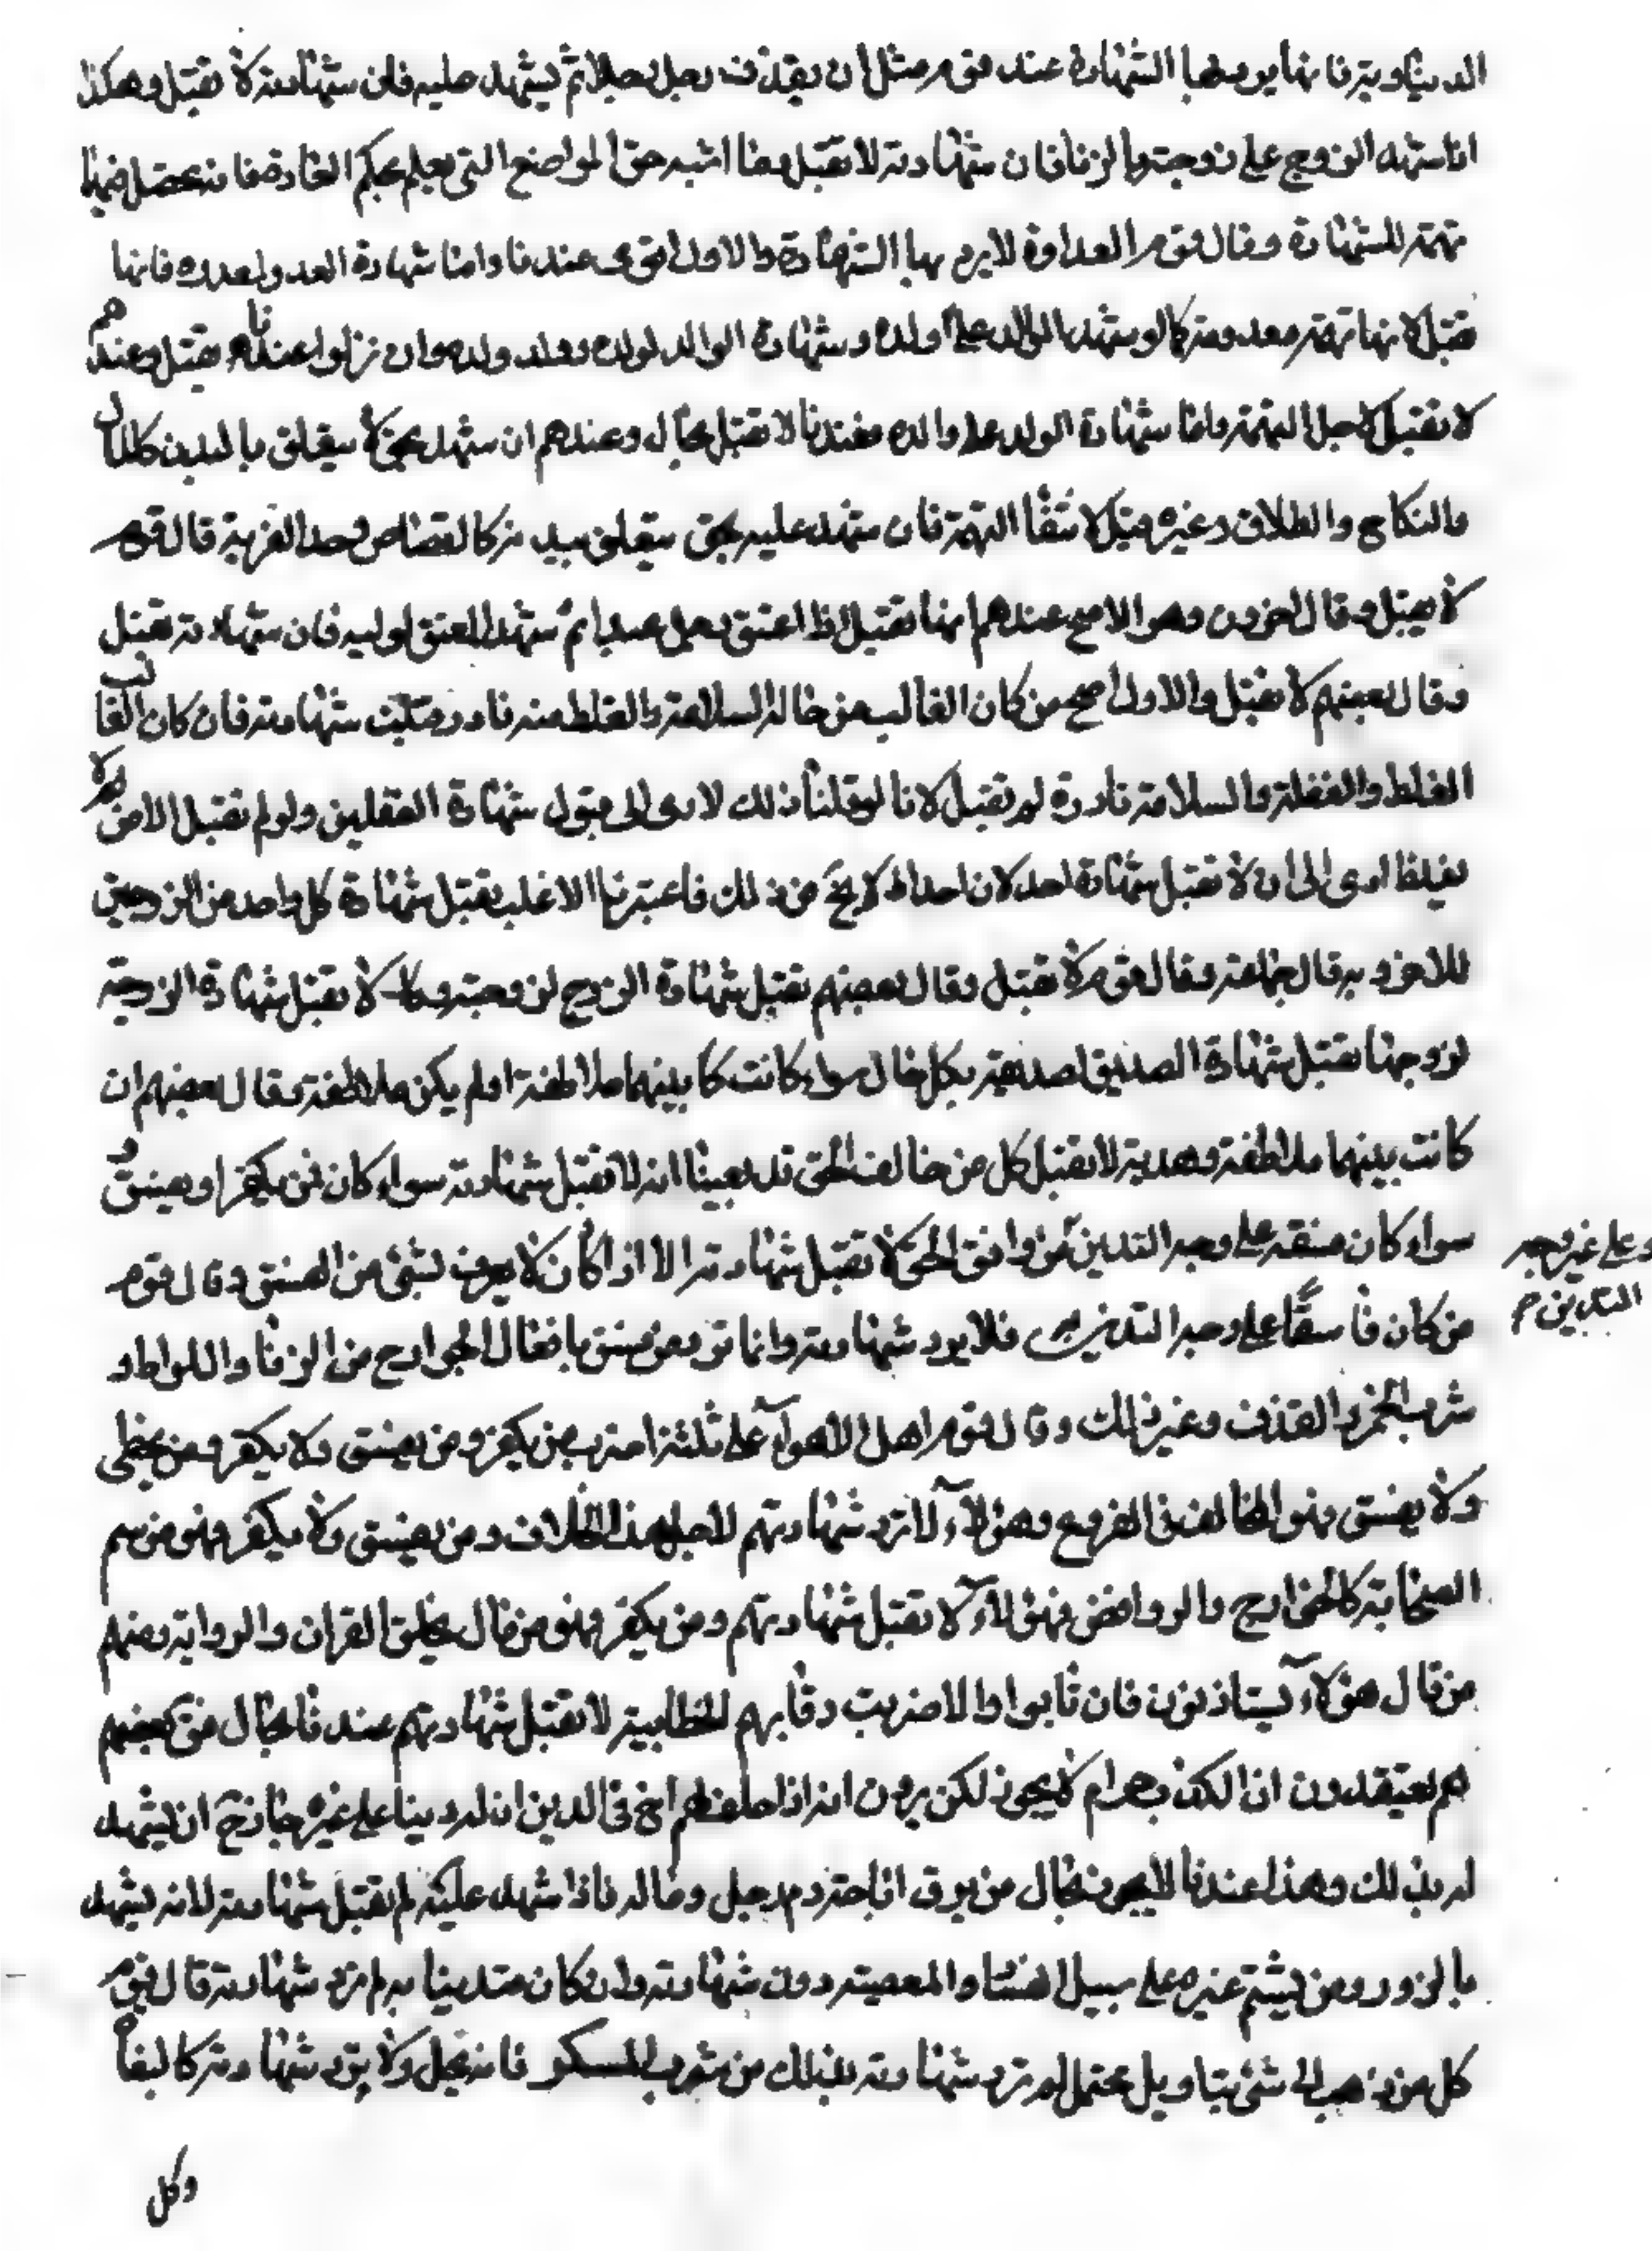 الدنياوية فانها يرد بها الشهادة عند قوم مثل ان يقذف رجل رجلا ثم يشهد عليه فان شهادته لا تقبل وهكذا
اذا شهد الزوج على زوجته بالزنا فان شهادته لا تقبل وما اشبه من المواضع التي يعلم بحكم العادة فانه تحصل فيها
تهمة للشهادة وقال قوم العداوة لا يرد بها الشهادة والاول اقوى عندنا واما شهادة العدو لعدوه فانها
تقبل لانها تهمة معدومة كما لو شهد الوالد على ولده وشهادة الوالد لولده وولد ولده وان نزلوا عندنا تقبل وعندهم
لا تقبل لاجل التهمة واما شهادة الولد على والده فعندنا لا تقبل بحال وعندهم ان شهد بحق لا يتعلق بالبدن كالمال
والنكاح والطلاق وغيره قبل لانتفا التهمة فان شهد عليه بحق يتعلق ببدنه كالقصاص وحد الفرية قال قوم
لا يقبل وقال اخرون وهو الاصح عندهم انها تقبل اذا اعتق رجل عبدا ثم شهد المعتق لوليه فان شهادته تقبل
وقال بعضهم لا تقبل والاول اصح من كان الغالب من حاله السلامة والغلط منه نادر قبلت شهادته فان كان الغالب
الغلط والغفلة والسلامة نادرة لم تقبل لانا لو قبلنا ذلك لادى الى قبول شهادة المغفلين ولو لم تقبل الا من لا
يغلط ادى الى ان لا تقبل شهادة احد لان احدا لا يخ من ذلك فاعتبرنا الاغلب تقبل شهادة كل واحد من الزوجين
للاخر وبه قال جماعة وقال قوم لا تقبل وقال بعضهم تقبل شهادة الزوج لزوجته ولا تقبل شهادة الزوجة
لزوجها تقبل شهادة الصديق لصديقه بكل حال سواء كانت بينهما ملاطفة او لم يكن ملاطفة وقال بعضهم ان
كانت بينهما ملاطفة وهدية لا تقبل كل من خالف الحق قد بينا انه لا تقبل شهادته سواء كان من يكفر او يفسق و
سواء كان فسقه على وجه التدين من وافق الحق لا تقبل شهادته الا اذا كان لا يعرف بشئ من الفسق وقال قوم
وعلى غير وجه
التدين م
من كان فاسقا على وجه التدين فلا يرد شهادته وانما ترد من فسق بافعال الجوارح من الزنا واللواط و
شرب الخمر والقذف وغير ذلك وقال قوم اهل الاهوآء على ثلثة اضرب من يكفر ومن يفسق ولا يكفر ومن يخطى
ولا يفسق فهو المخالف في الفروع وهؤلآء لا ترد شهادتهم لاجل هذا الخلاف ومن يفسق ولا يكفر فهو من سم
الصحابة كالخوارج والروافض فهؤلآء لا تقبل شهادتهم ومن يكفر فهو من قال بخلق القران والرواية ومنهم
من قال هؤلآء يستاذنون فان تابوا والا ضربت رقابهم الخطابية لا تقبل شهادتهم عندنا بحال
هم يعتقدون ان الكذب حرام لا يجوز لكن يرون انه اذا حلف لهم اخ في الدين ان له دينا على غيره جاز ان يشهد
له بذلك وهذا عندنا لا يجوز بحال من يرى اباحة دم رجل وماله فاذا شهد عليه لم تقبل شهادته لانه يشهد
بالزور ومن يشتم غيره على سبيل المعصية ردت شهادته وان كان متدينا به لم ترد شهادته قال قوم
كل من ذهب الى شئ بتاويل محتمل لم ترد شهادته بذلك من شرب المسكر فانه يحل ولا يرد شهادته كالبغاة
وكل